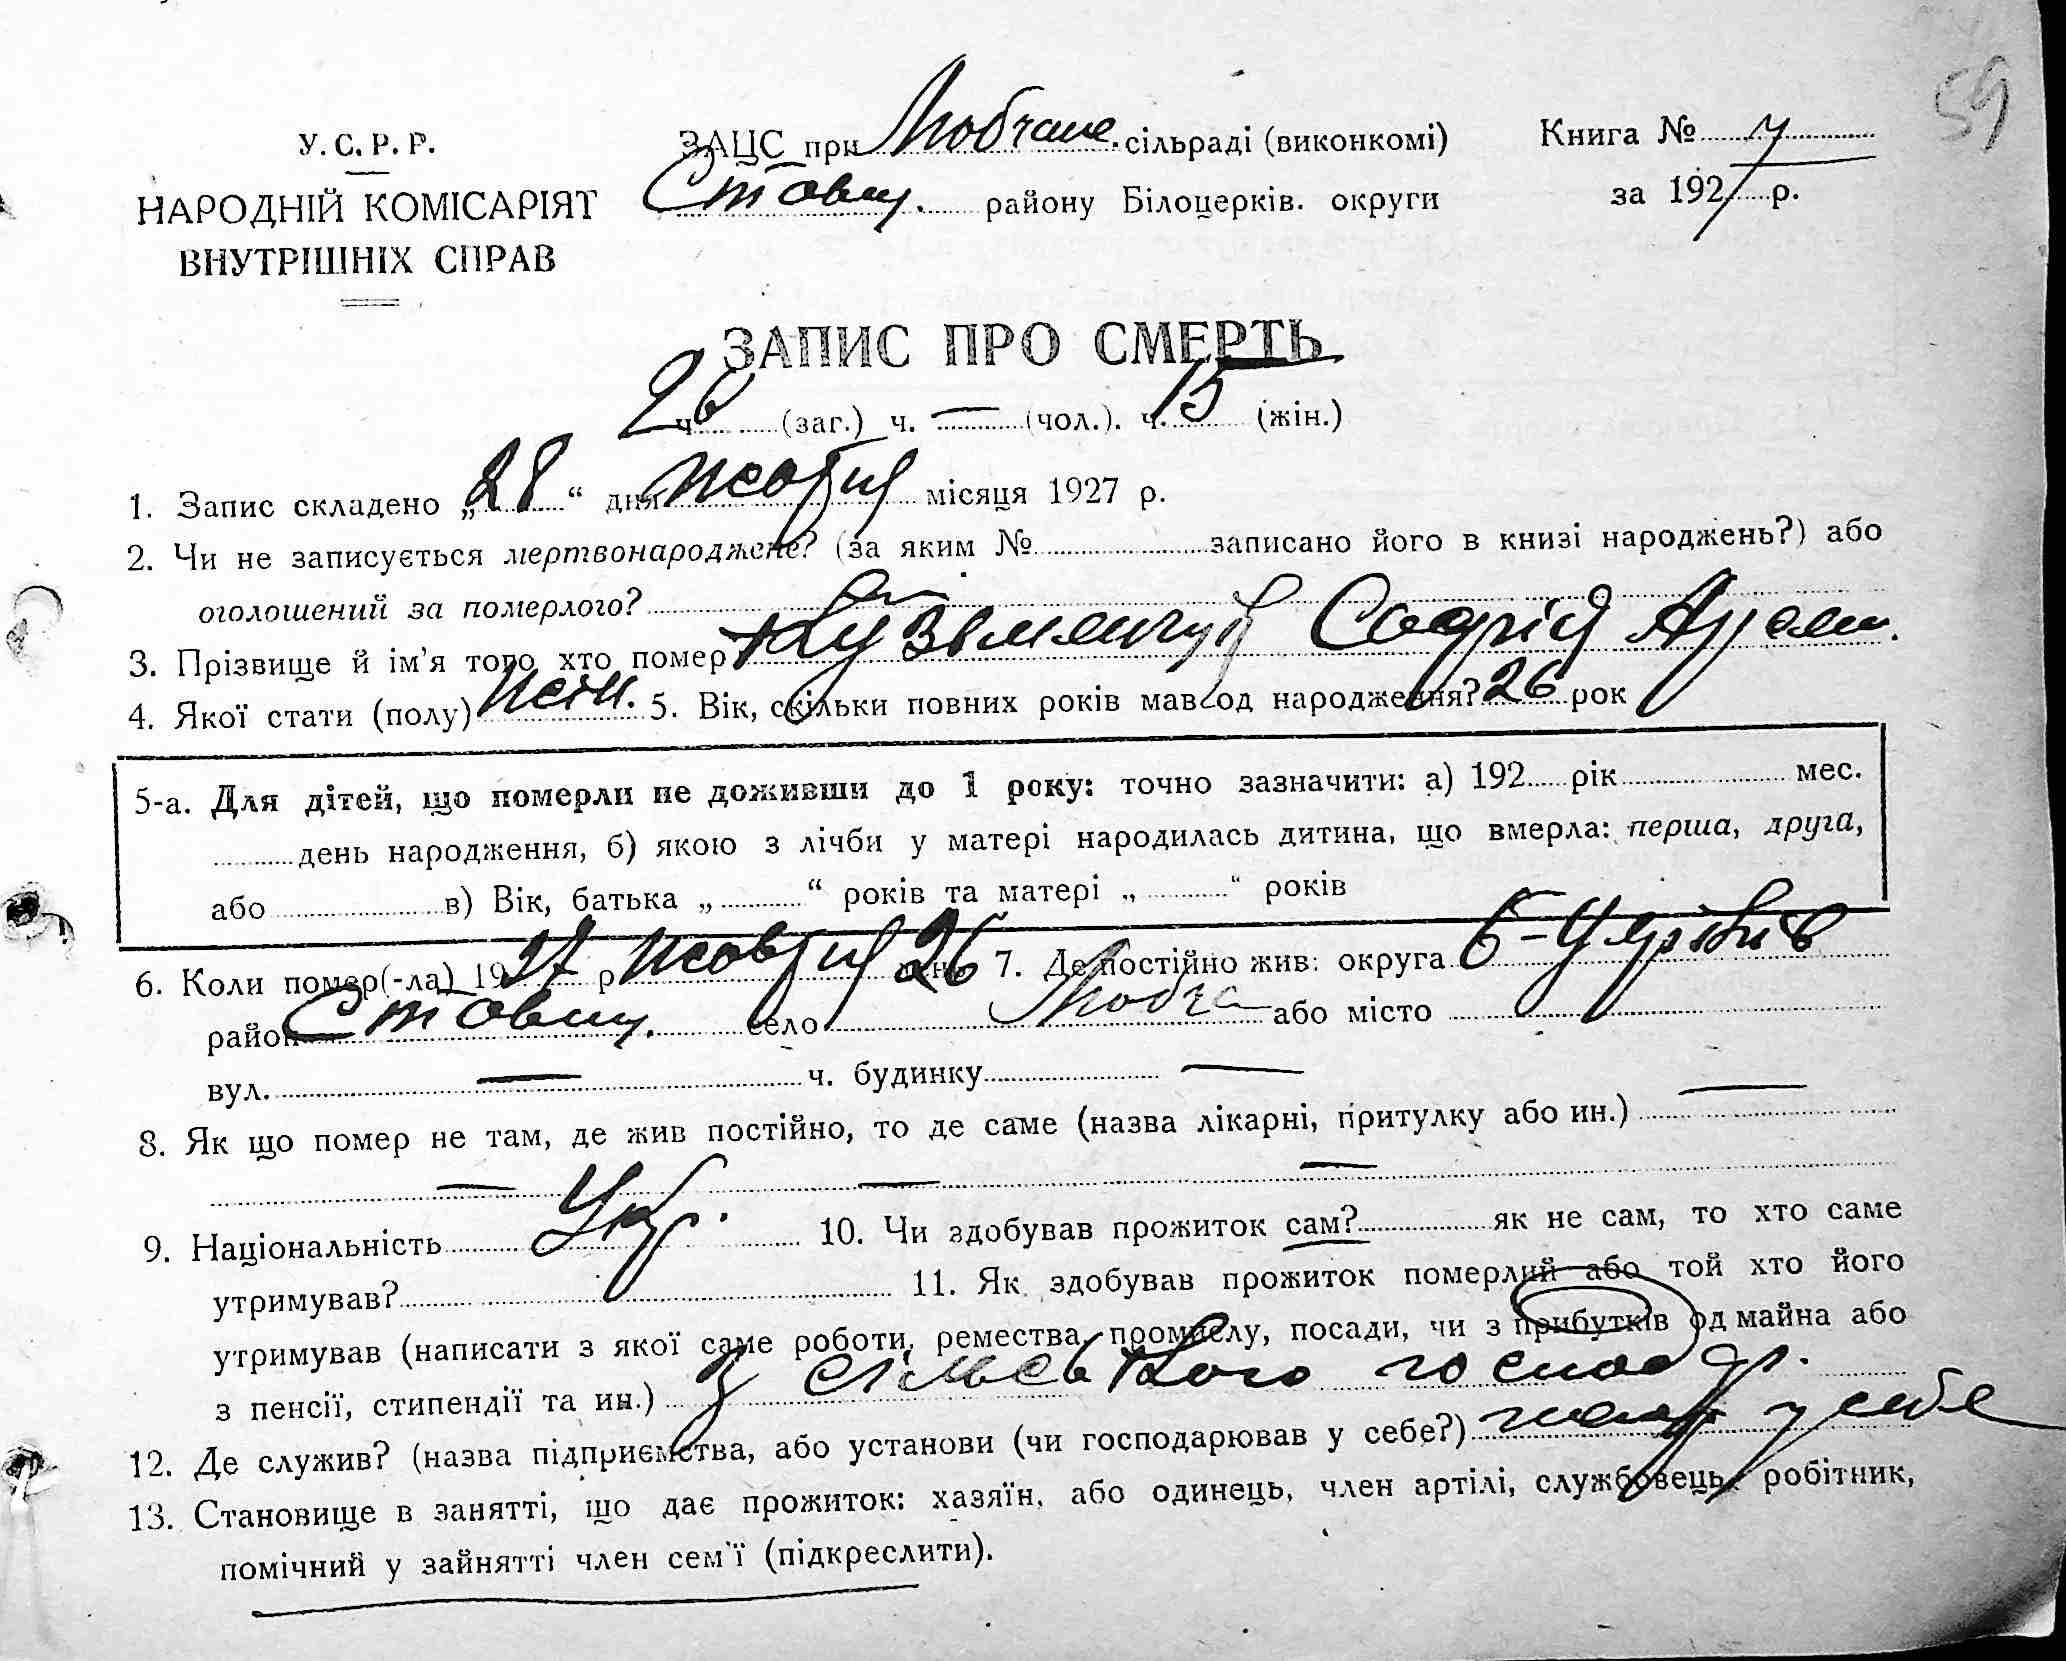 59
У.С.Р.Р. ЗАЦС при Любчанс. сільраді (виконкомі) Книга №
НАРОДНІЙ КОМІСАРІЯТ Ставищ. району Білоцерків. округи за 1927 р.
ВНУТРІШНІХ СПРАВ
ЗАПИС ПРО СМЕРТЬ
ч. 26 (заг.) ч. — (чол.). ч. 15 (жін.)
1. Запис складено „28“ дня жовтня місяця 1927 р.
2. Чи не записується мертвонароджене? (за яким № записано його в книзі народжень?) або
оголошений за померлого?
3. Прізвище й ім'я того хто помер Кузьменчук
4. Якої стати (полу) жін. 5. Вік, скільки повних років мав од народження? 26 рок
5-а. Для дітей, що померли не доживши до 1 року: точно зазначити: а) 192 рік мес.
день народження, б) якою з лічби у матері народилась дитина, що вмерла: перша, друга,
або в) Вік, батька „ “ років та матері „ “ років
6. Коли помер(-ла) 1927 р жовтня 26 день 7. Де постійно жив: округа Б-Церківс
район Ставищ. село Любча або місто
вул. — ч. будинку —
8. Як що помер не там, де жив постійно, то де саме (назва лікарні, притулку або ин.) —
— — —
9. Національність Укр. 10. Чи здобував прожиток сам? як не сам, то хто саме
утримував? 11. Як здобував прожиток померлий або той хто його
утримував (написати з якої саме роботи, ремества, промислу, посади, чи з прибутків од майна або
з пенсії, стипендії та ин.) З сільського господар.
12. Де служив? (назва підприємства, або установи (чи господарював у себе?) у себе
13. Становище в занятті, що дає прожиток: хазяїн, або одинець, член артілі, службовець, робітник,
помічний у зайнятті член сем'ї (підкреслити).